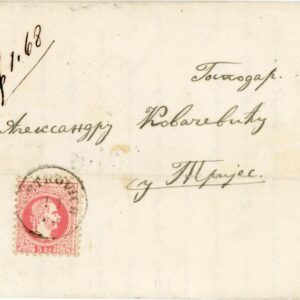 1.68
Господар.
Александру Ковачевићу
у Тријес.
5 kr